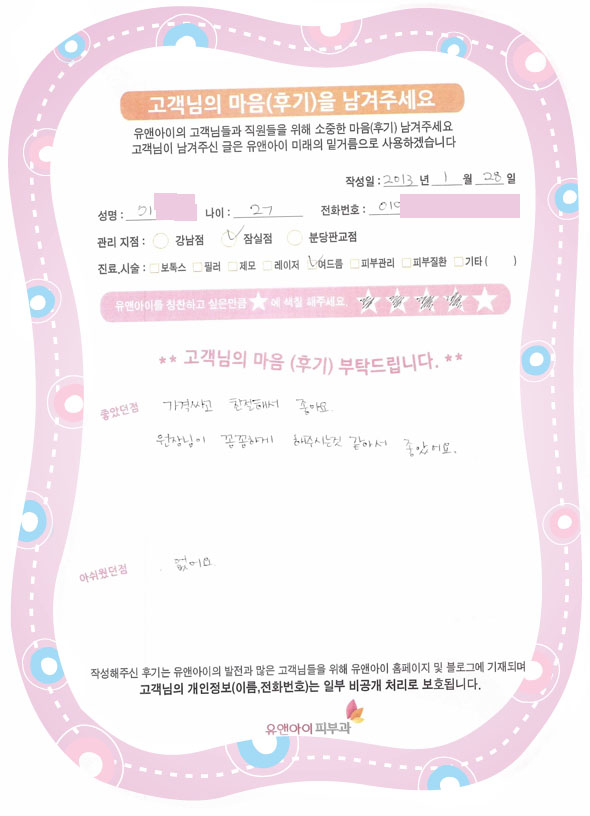 고객님의 마음(후기)을 남겨주세요
유앤아이의 고객님들과 직원들을 위해 소중한 마음(후기) 남겨주세요
고객님이 남겨주신 글은 유앤아이 미래의 밑거름으로 사용하겠습니다
작성일 : 2013 년 1 월 28 일
성명 : 나이 : 27 전화번호 : 010
관리 지점 : 강남점 잠실점 분당판교점
진료,시술 : 보톡스 필러 제모 레이저 여드름 피부관리 피부질환 기타 ( )
유앤아이를 칭찬하고 싶은만큼 ★ 에 색칠 해주세요.
** 고객님의 마음 (후기) 부탁드립니다. **
좋았던점 가격싸고 친절해서 좋아요.
원장님이 꼼꼼하게 해주시는것 같아서 좋았어요.
아쉬웠던점 . 없어요.
작성해주신 후기는 유앤아이의 발전과 많은 고객님들을 위해 유앤아이 홈페이지 및 블로그에 기재되며
고객님의 개인정보(이름,전화번호)는 일부 비공개 처리로 보호됩니다.
유앤아이 피부과